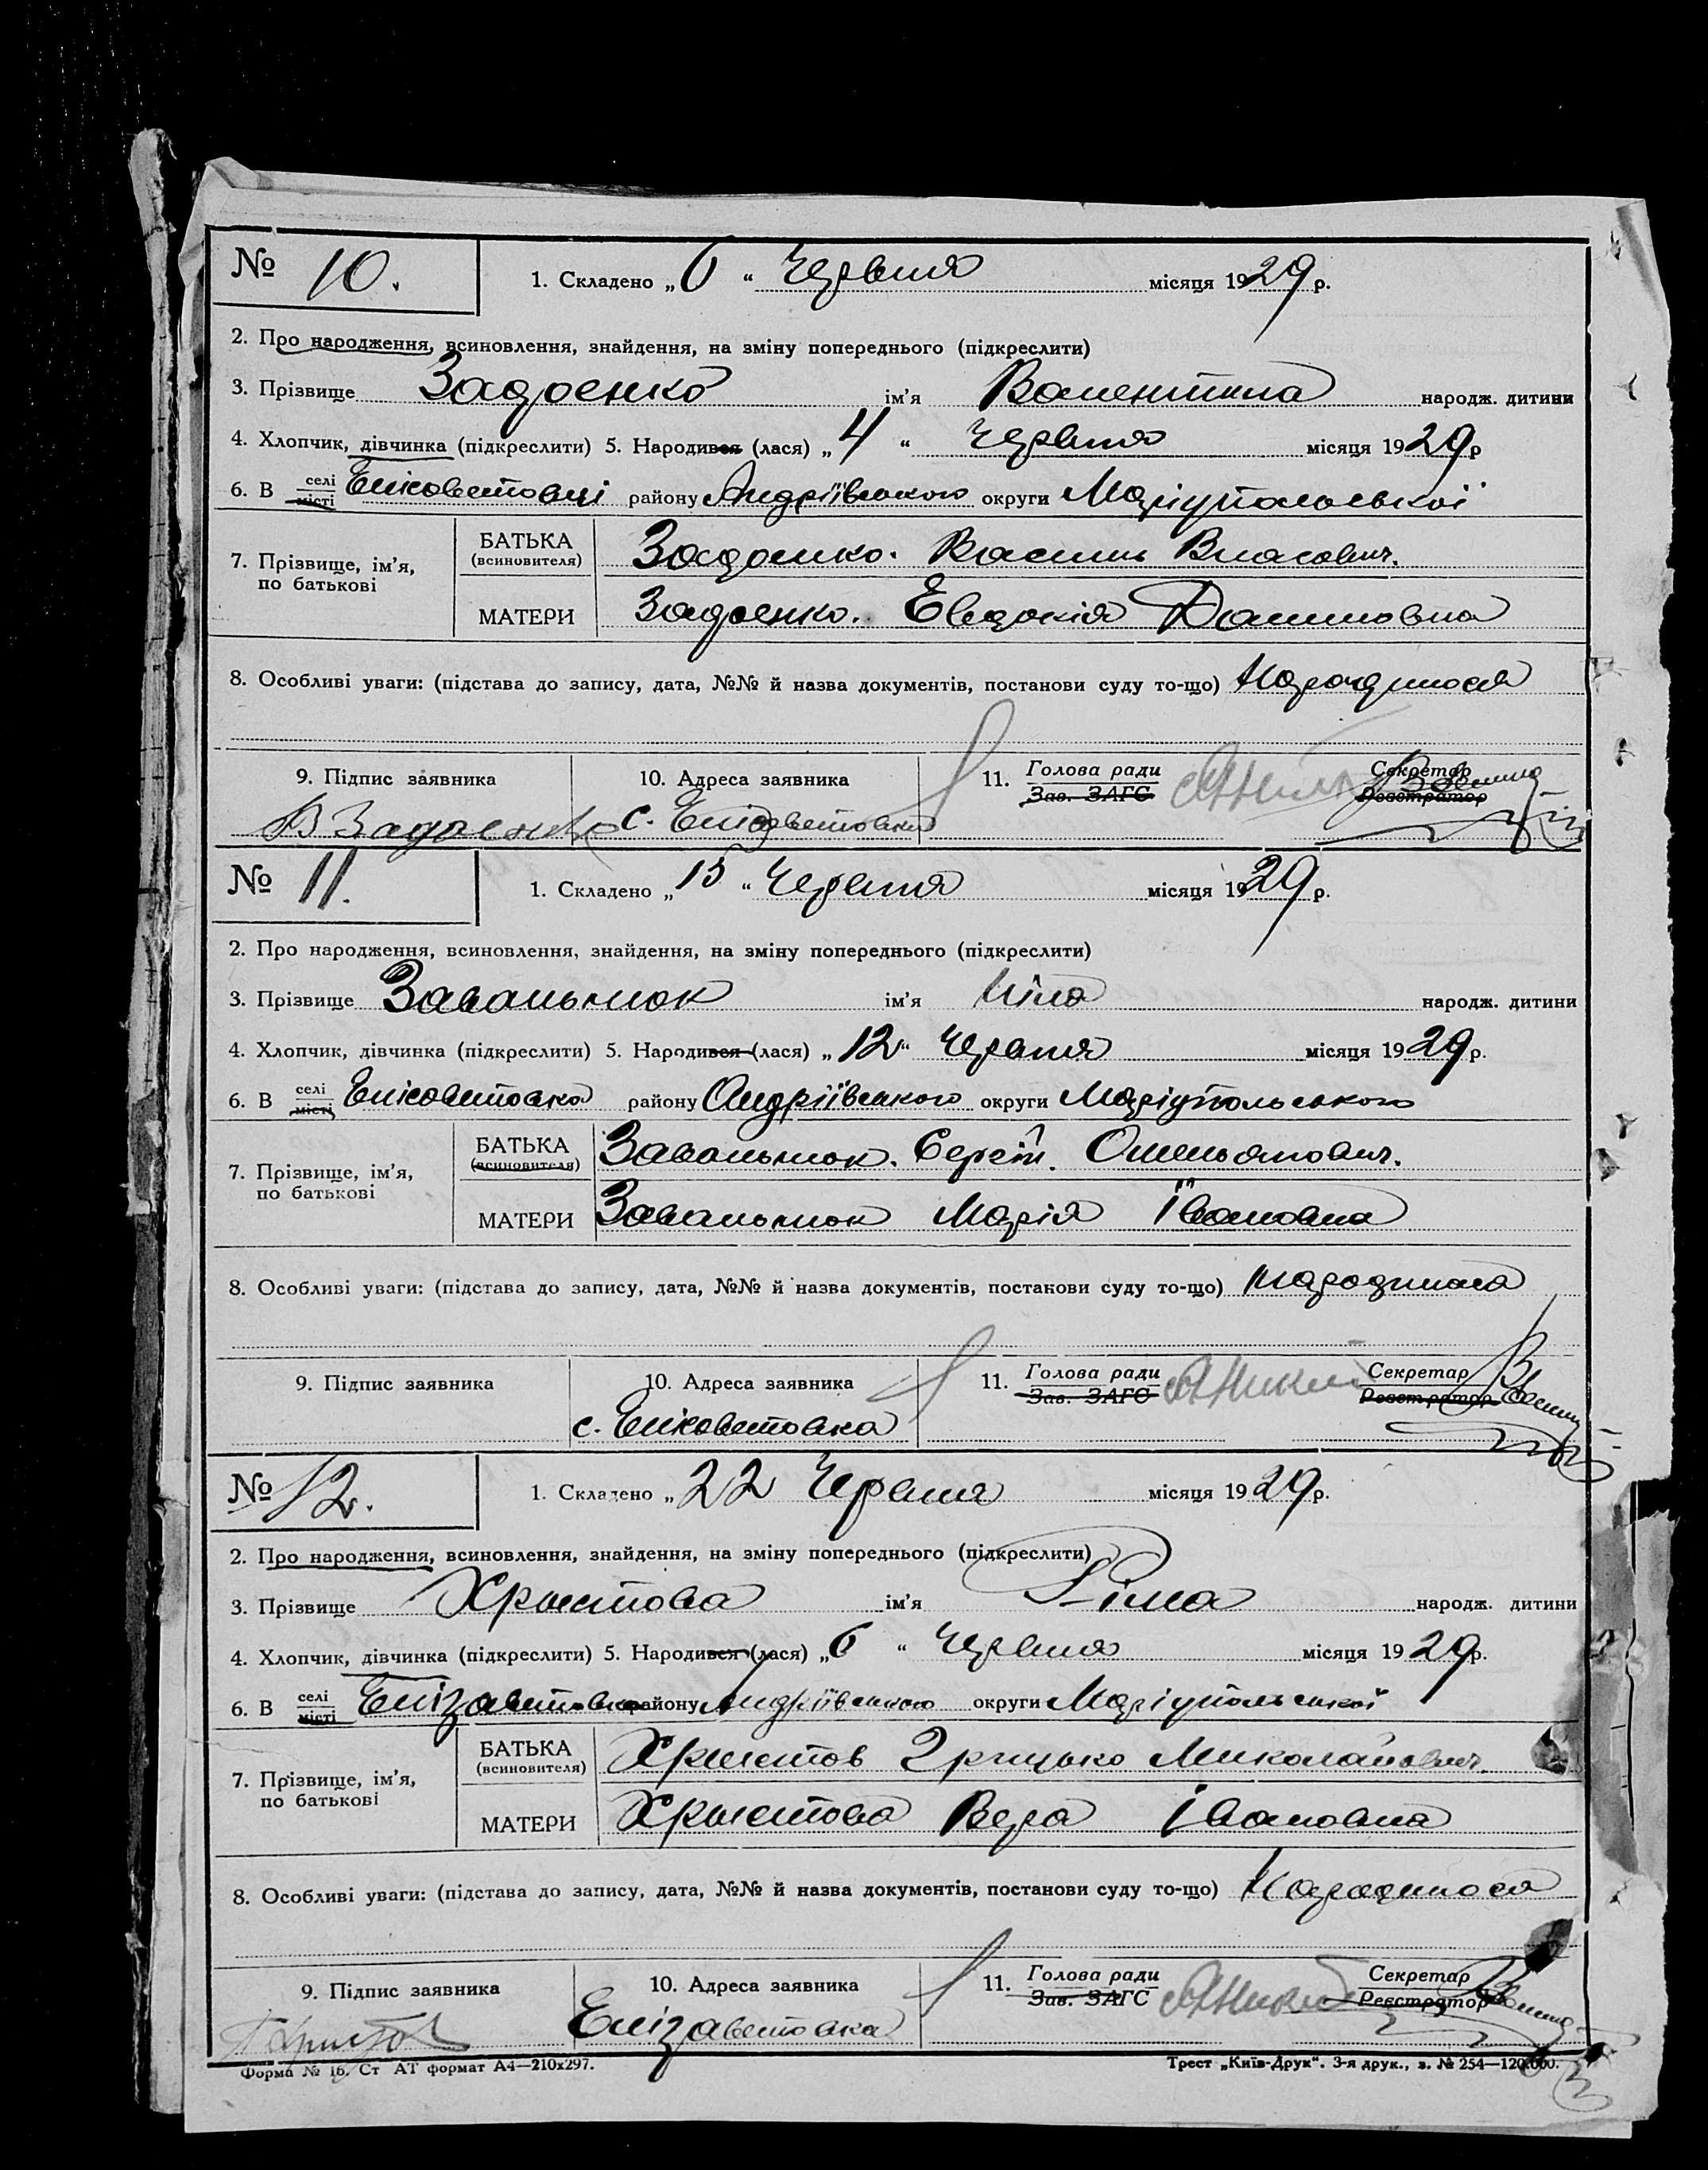 № 10. 1. Складено „6“ Червня місяця 1929 р.
2. Про народження, всиновлення, знайдення, на зміну попереднього (підкреслити)
3. Прізвище Задоенко ім'я Валентина народж. дитини
4. Хлопчик, дівчинка (підкреслити) 5. Народився (лася) „4“ Червня місяця 1929 р
6. В селі місті Елісаветовці району Андріївського округи Маріупольської
7. Прізвище, ім'я, по батькові
БАТЬКА (всиновителя) Задоенко. Василь Власович.
МАТЕРИ Задоенко. Евдокія Даниловна
8. Особливі уваги: (підстава до запису, дата, №№ й назва документів, постанови суду то-що) Народилося
9. Підпис заявника 10. Адреса заявника 11. Голова ради Зав. ЗАГС Секретар Реєстратор
В Задоенко с. Елісаветовка
№ 11. 1. Складено „15“ Червня місяця 1929 р.
2. Про народження, всиновлення, знайдення, на зміну попереднього (підкреслити)
3. Прізвище Завальнюк ім'я Ніна народж. дитини
4. Хлопчик, дівчинка (підкреслити) 5. Народився (лася) „12“ Червня місяця 1929 р.
6. В селі місті Елісаветовка району Андріївського округи Маріупольського
7. Прізвище, ім'я, по батькові
БАТЬКА (всиновителя) Завальнюк. Сергій. Омельянович.
МАТЕРИ Завальнюк Марія Івановна
8. Особливі уваги: (підстава до запису, дата, №№ й назва документів, постакови суду то-що)
9. Підпис заявника 10. Адреса заявника 11. Голова ради Зав. ЗАГС Секретар Реєстратор
с. Елісаветовка
№ 12. 1. Складено „22 Червня місяця 1929 р.
2. Про народження, всиновлення, знайдення, на зміну попереднього (підкреслити)
3. Прізвище Христова ім'я народж. дитини
4. Хлопчик, дівчинка (підкреслити) 5. Народився (лася) „6“ Червня місяця 1929 р.
6. В селі місті Елізаветовка району Андріївського округи Маріупольської
7. Прізвище, ім'я, по батькові
БАТЬКА (всиновителя) Христов Грицько Миколайович.
МАТЕРИ Христова Вера Івановна
8. Особливі уваги: (підстава до запису, дата, №№ й назва документів, постанови суду то-що) Народилося
9. Підпис заявника 10. Адреса заявника 11. Голова ради Зав. ЗАГС Секретар Реєстратор
Елізаветовка
Форма № 16. Ст АТ формат А4—210х297. Трест „Київ-Друк“. 3-я друк., з. № 254—120.000.